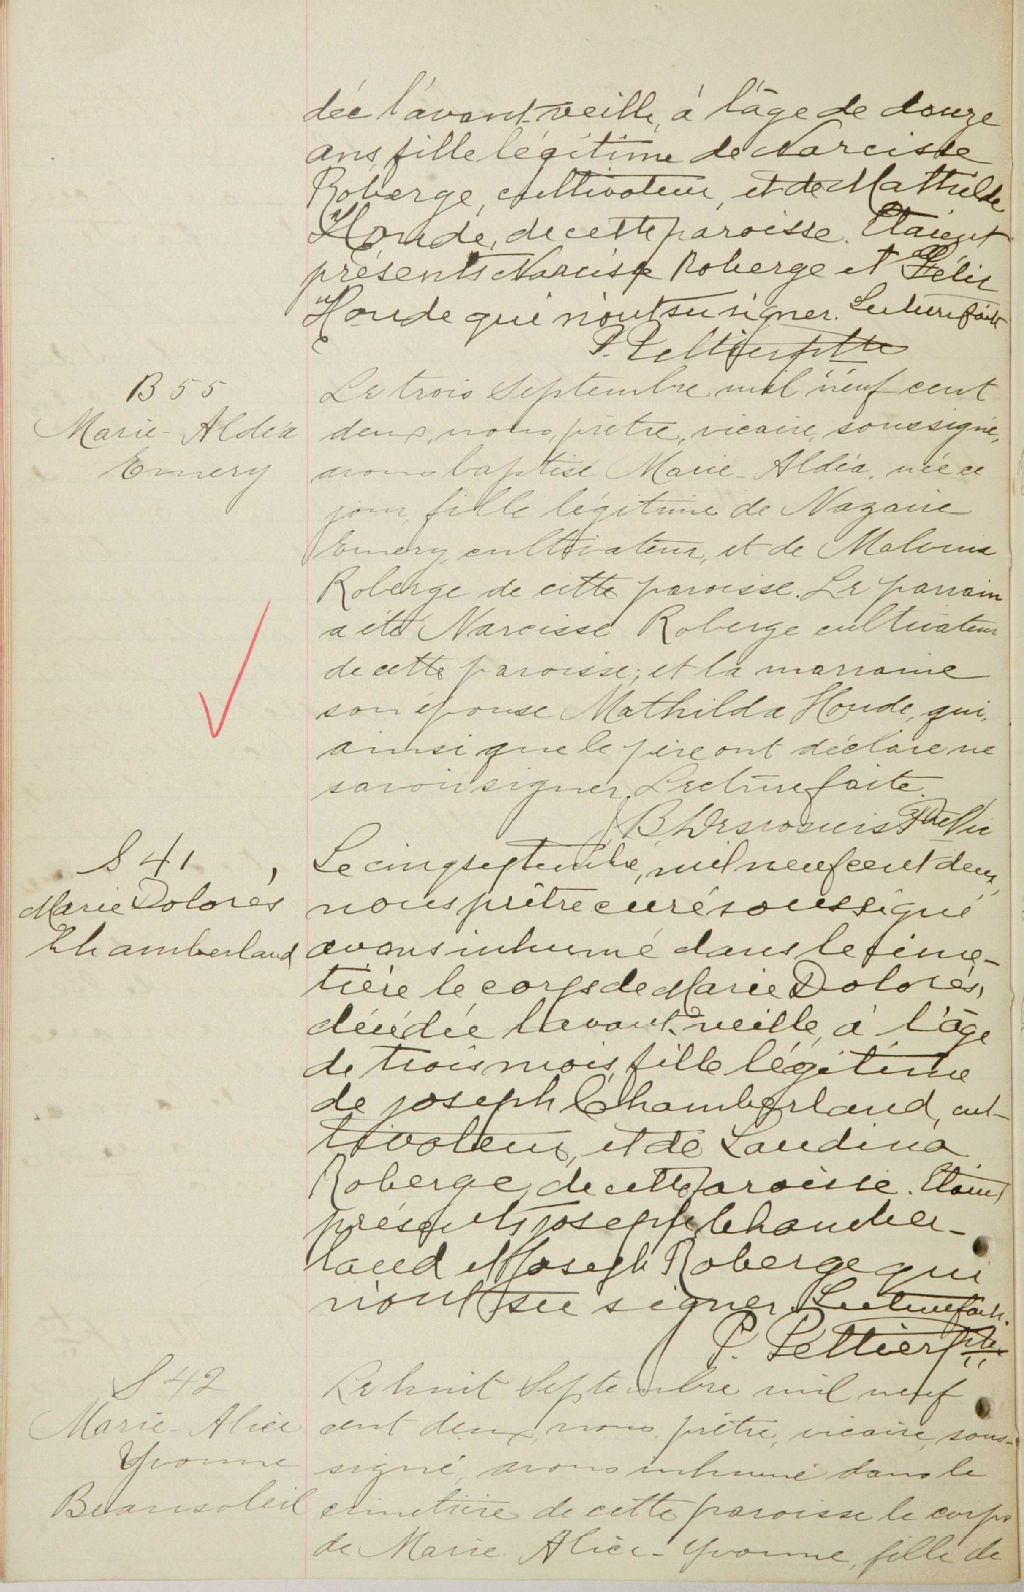 dée l'avant-veille, à l'âge de douze
ans, fille légitime de Narcisse
Roberge, cultivateur, et de Mathilde
Houde, de cette paroisse. Etaient
présents Narcisse Roberge et Félix
Houde qui n'ont su signer. Lecture faite
P. Pelletier ptre
B 55
Marie-Aldéa
Emery
Le trois Septembre mil neuf cent
deux, nous, prêtre, vicaire, soussigné,
avons baptisé Marie-Aldéa, née ce
jour, fille légitime de Nazaire
Emery, cultivateur, et de Malvina
Roberge de cette paroisse. Le parrain
a été Narcisse Roberge cultivateur
de cette paroisse; et la marraine
son épouse Mathilda Houde, qui,
ainsi que le père ont déclaré ne
savoir signer. Lecture faite.
B. Desrosiers Ptre Vic
S 41
Marie Dolorès
Chamberland
Le cinq septembre, mil neuf cent deux,
nous prêtre curé soussigné
avons inhumé dans le cime-
tière le corps de Marie Dolorès,
décédée l'avant-veille, à l'âge
de trois mois, fille légitime
de joseph Chamberland, cul-
tivateur, et de Laudina
Roberge, de cette paroisse. Etaient
présents joseph Chamber-
land et Joseph Roberge qui
n'ont su signer. Lecture faite.
P. Pelletier ptre
S 42
Marie-Alice
Yvonne
Beausoleil
Le huit Septembre mil neuf
cent deux, nous, prêtre, vicaire, sous-
signé, avons inhumé dans le
cimetière de cette paroisse le corps
de Marie-Alice-Yvonne, fille de